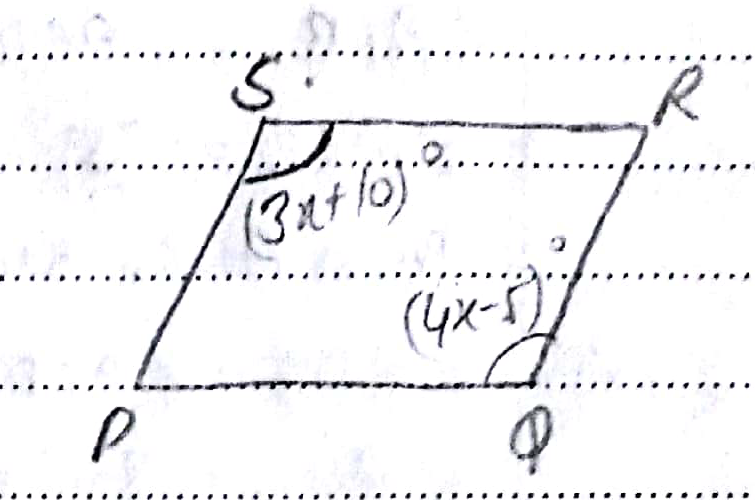 S R
(3x+10)°
(4x-5)°
P Q